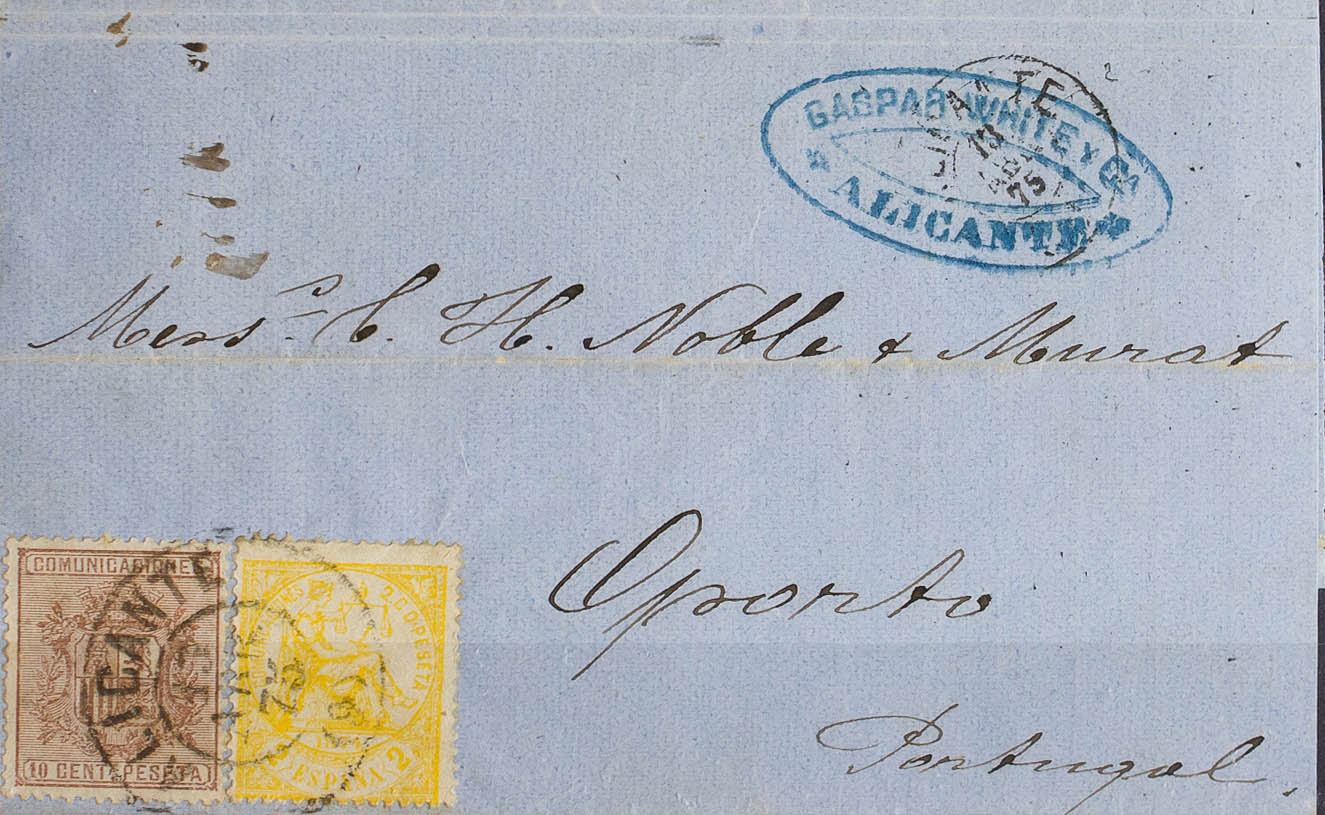 GASPAR WHITE Y Cª
ALICANTE
ANTE
13
75
Mess.rs C. H. Noble & Murat
Oporto
Portugal.
COMUNICACIONES
10 CENT. PESETA
2 C. D. PESETA
ESPAÑA 2
ALICANTE
13
75